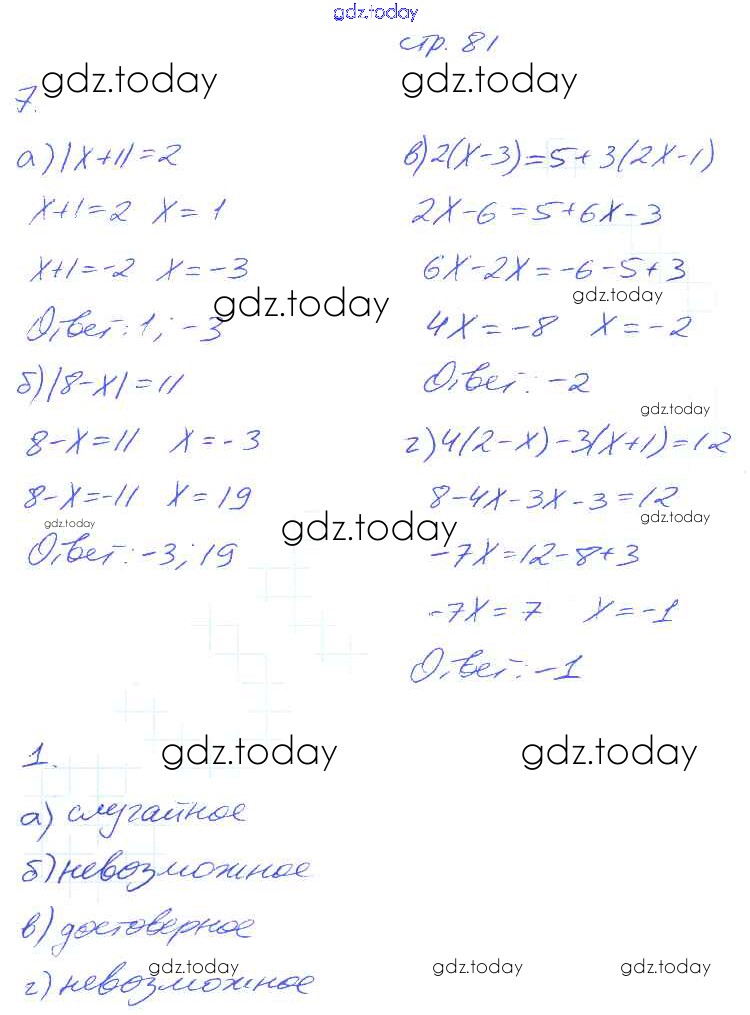 gdz.today
стр. 81
gdz.today gdz.today
7.
а) |x+1|=2
x+1=2 x=1
x+1=-2 x=-3
gdz.today
Ответ: 1; -3
б) |8-x|=11
8-x=11 x=-3
8-x=-11 x=19
gdz.today
gdz.today
Ответ: -3; 19
в) 2(x-3)=5+3(2x-1)
2x-6=5+6x-3
6x-2x=-6-5+3
gdz.today
4x=-8 x=-2
Ответ: -2
gdz.today
г) 4(2-x)-3(x+1)=12
8-4x-3x-3=12
gdz.today
-7x=12-8+3
-7x=7 x=-1
Ответ: -1
1.
gdz.today gdz.today
а) случайное
б) невозможное
в) достоверное
gdz.today gdz.today gdz.today
г) невозможное